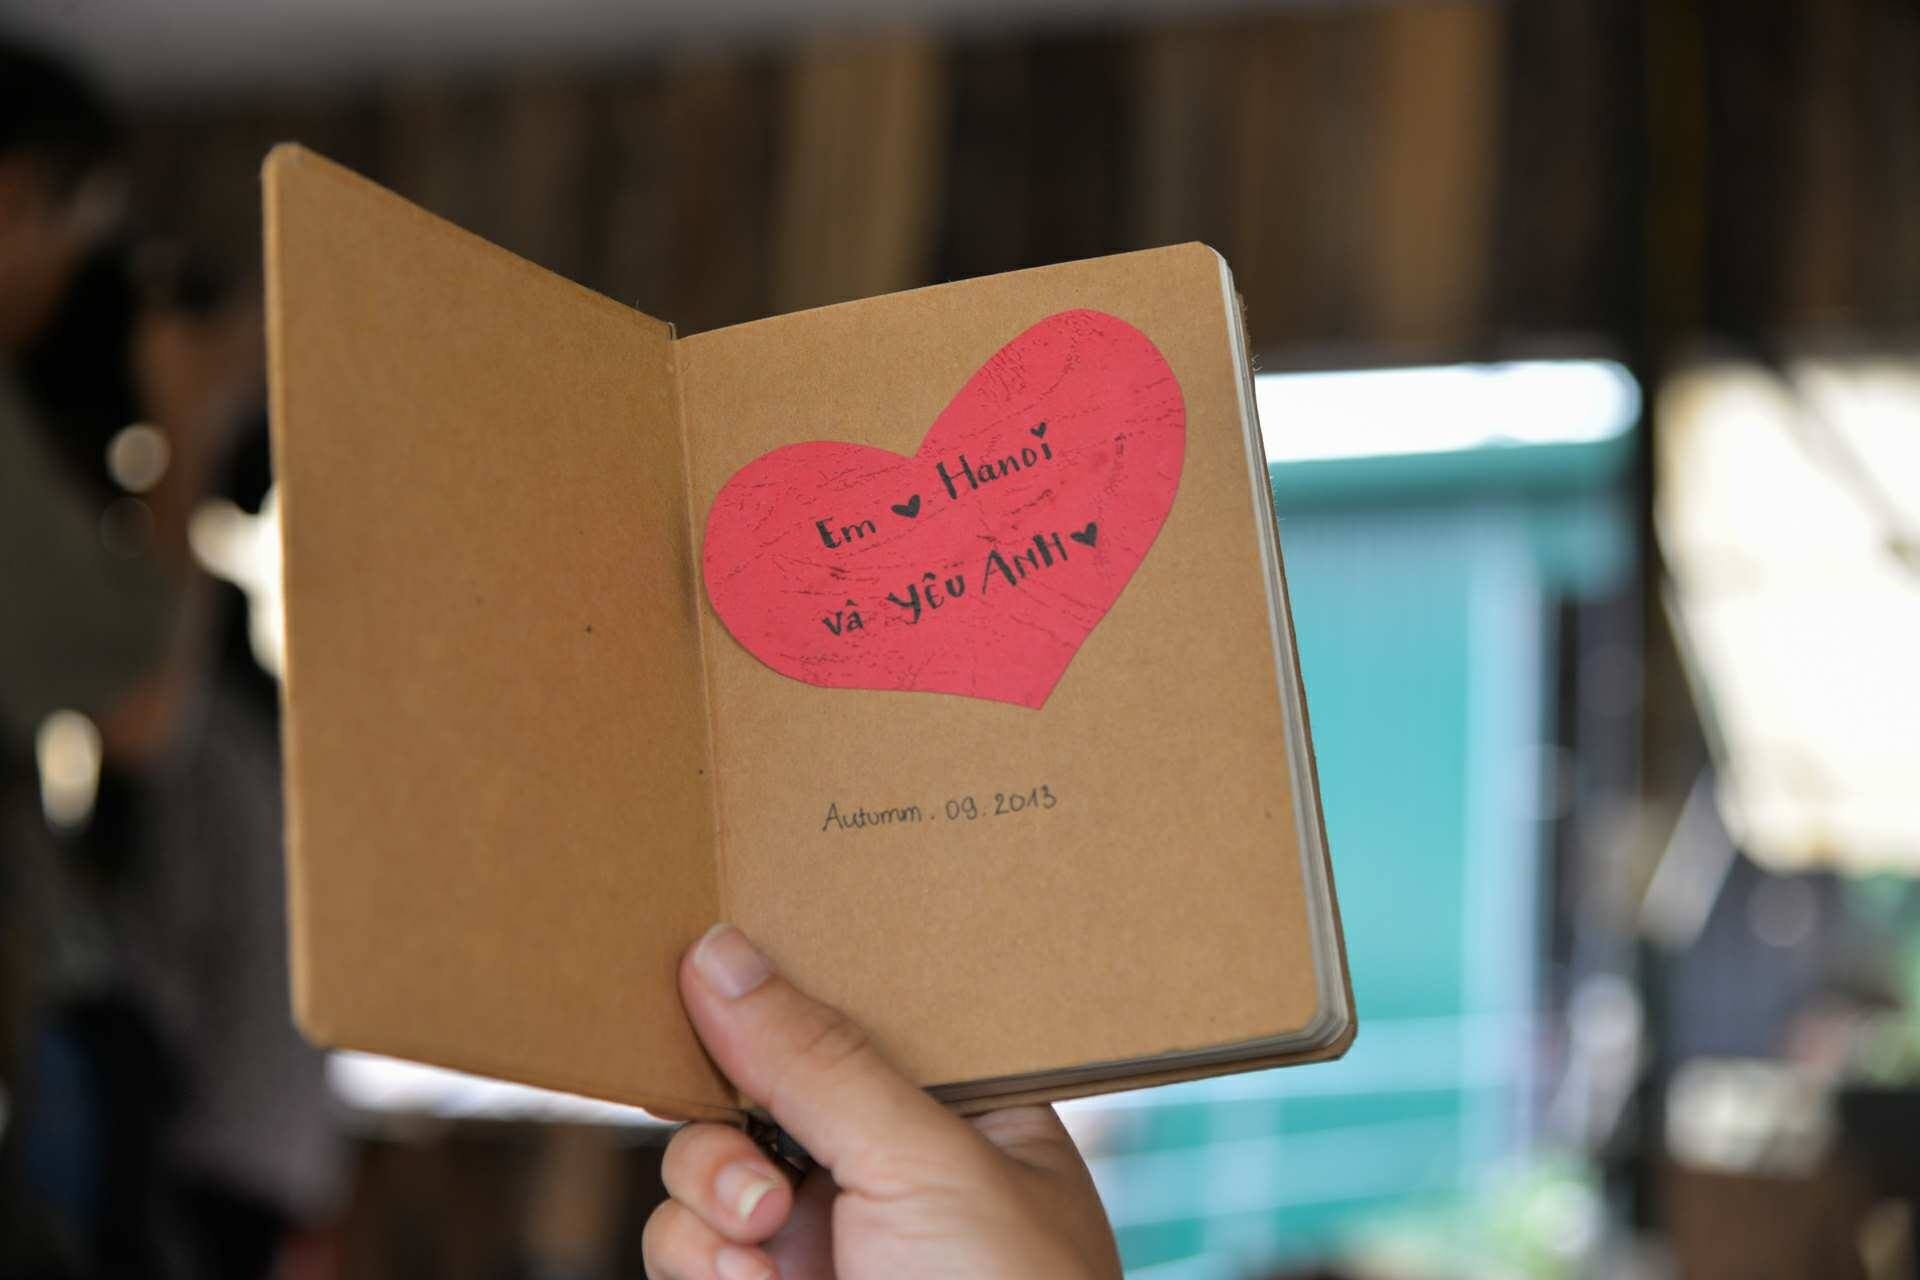 Em ♥ Hanoi
vâ yêu ANH ♥
Autumm . 09 . 2013